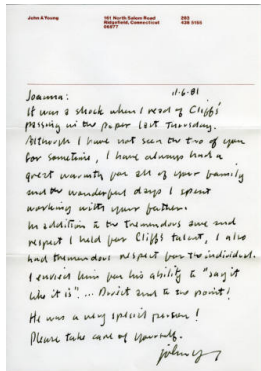 John A Young
161 North Salem Road
Ridgefield, Connecticut
06877
203
438 5155
11.6.81
Joanna:
It was a shock when I read of Cliffs'
passing in the paper last Thursday.
Although I have not seen the two of you
for sometime, I have always had a
great warmth for all of your family
and the wonderful days I spent
working with your father.
In addition to the tremendous awe and
respect I held for Cliff's talent, I also
had tremendous respect for the individual.
I envied him for his ability to "say it
like it is"... Direct and to the point!
He was a very special person!
Please take care of yourself.